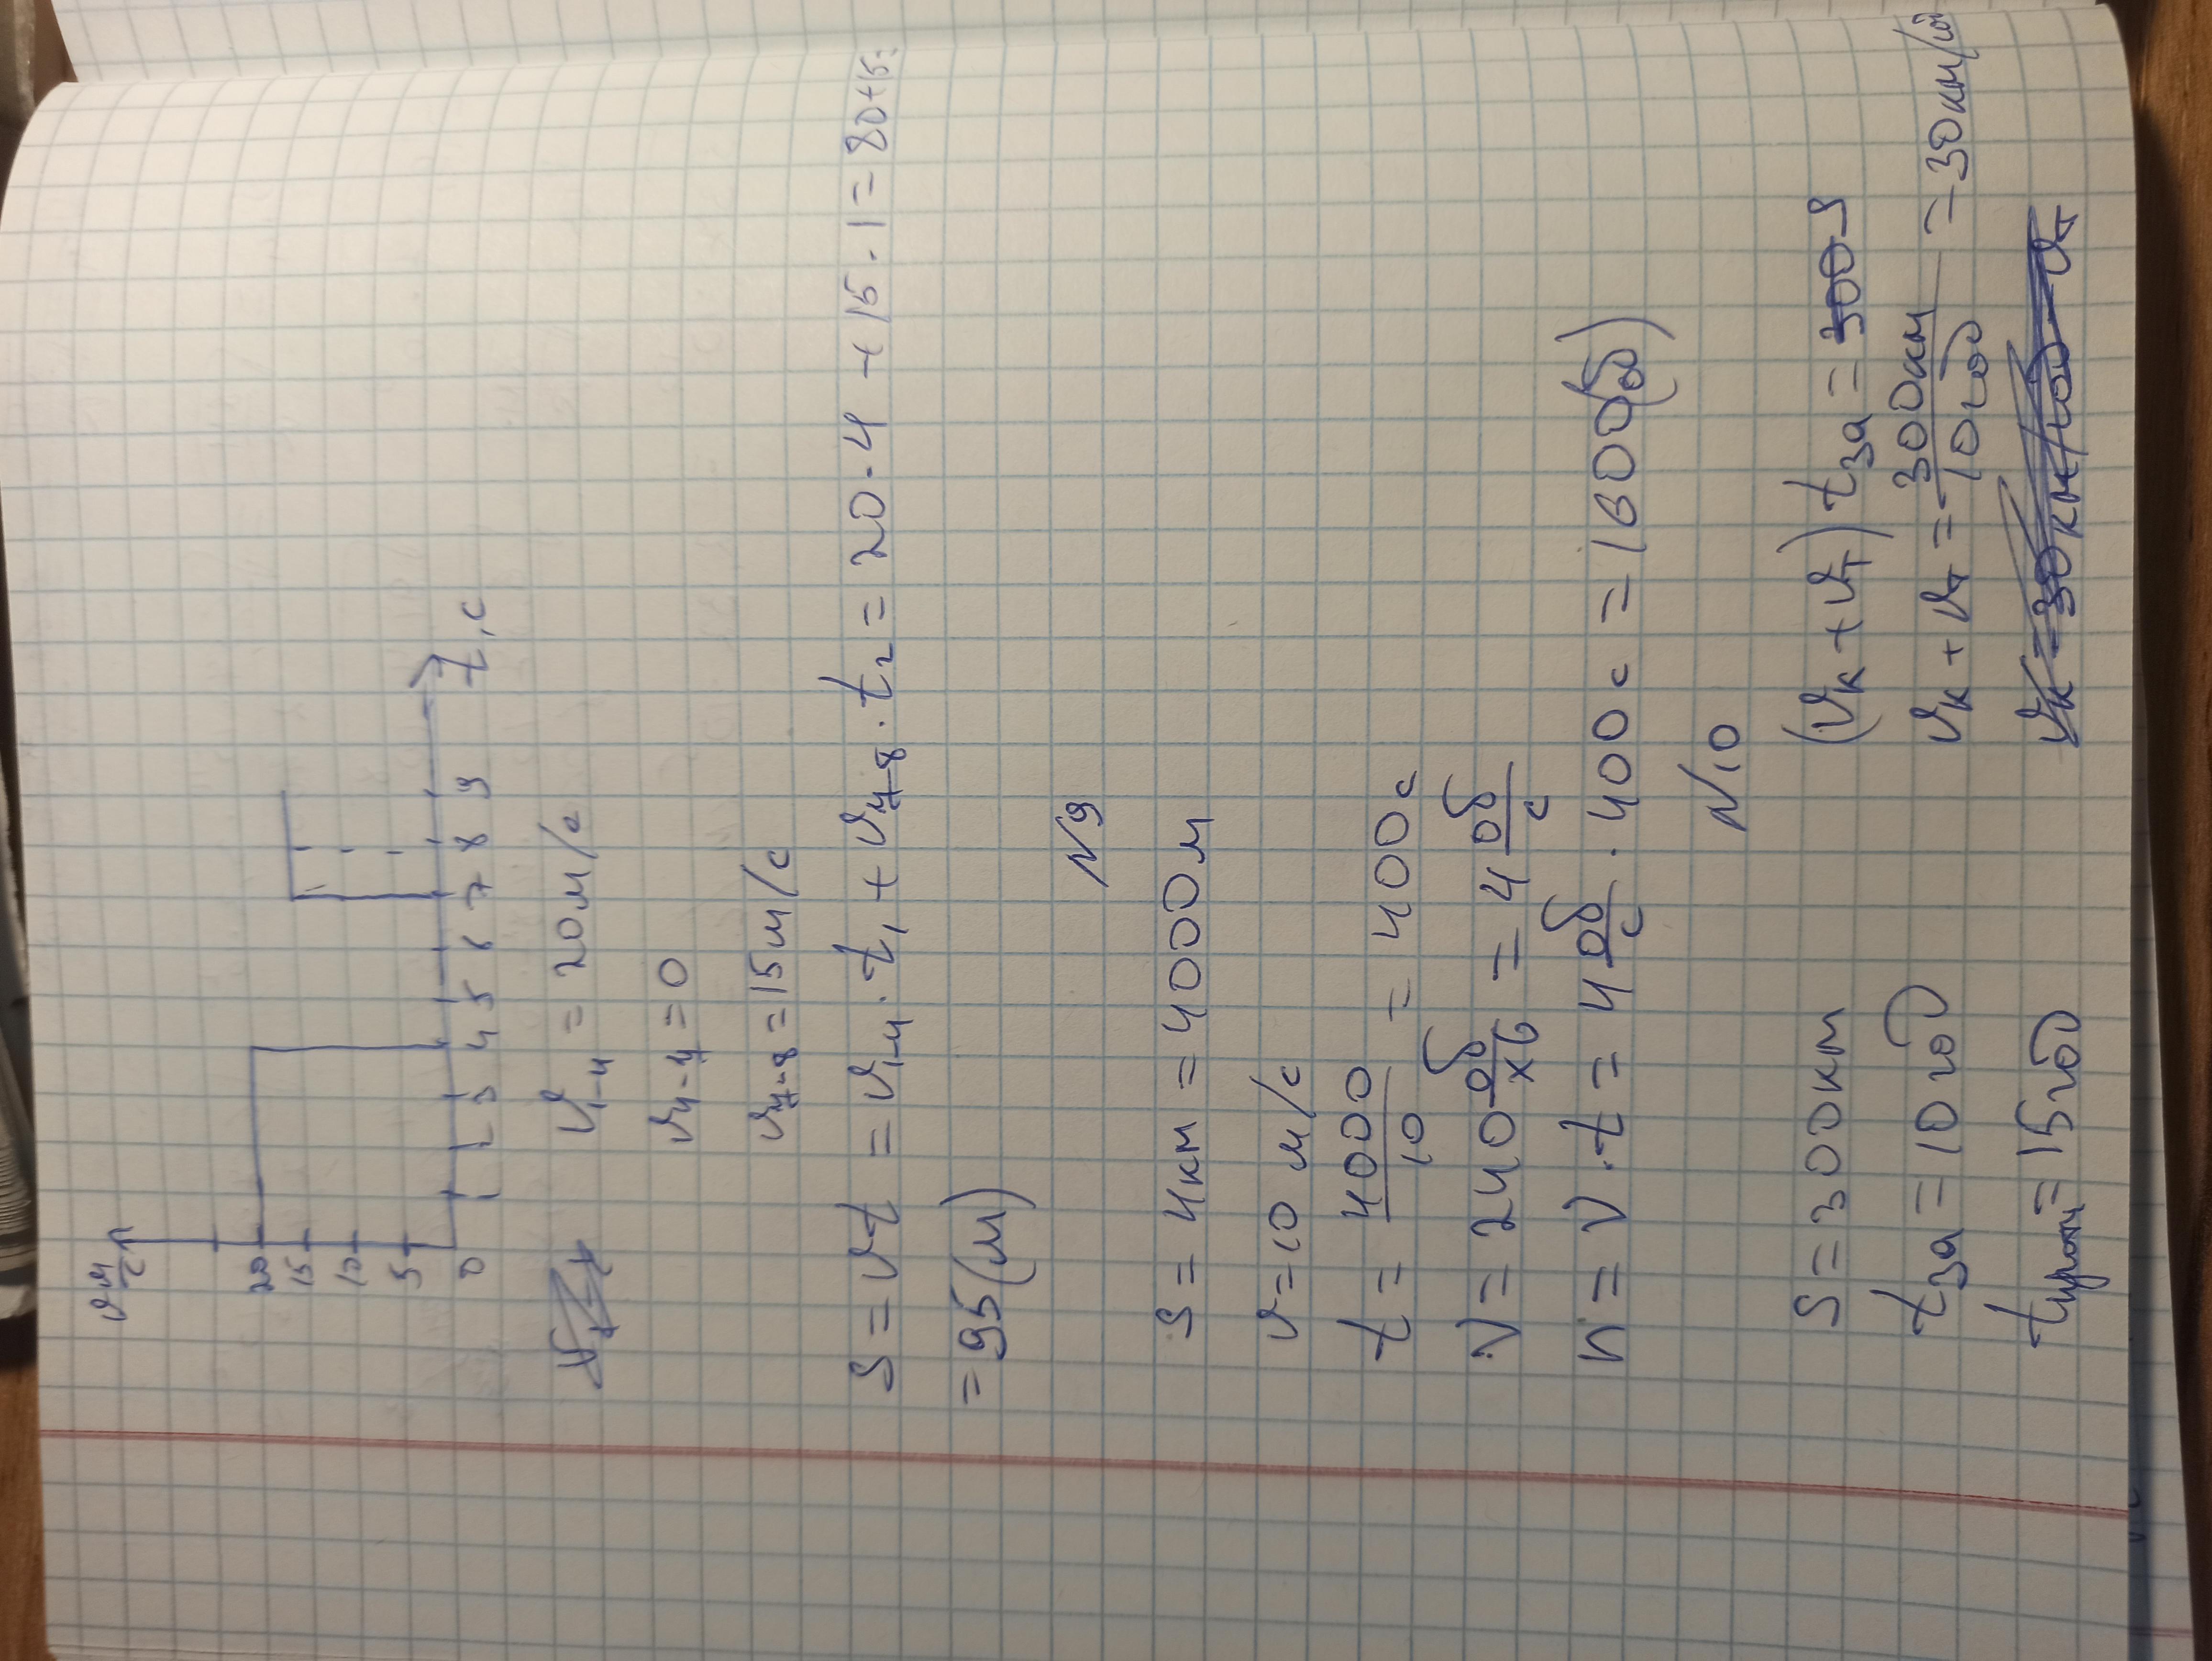 v м/с
20
15
10
5
0 1 2 3 4 5 6 7 8 9 t, c
v₁₋₄ = 20 м/с
v₄₋₇ = 0
v₇₋₈ = 15 м/с
S = vt = v₁₋₄ · t₁ + v₇₋₈ · t₂ = 20 · 4 + 15 · 1 = 80 + 15 =
= 95 (м)
N9
S = 4км = 4000м
v = 10 м/с
t = 4000/10 = 400 c
ν = 240 об/хв = 4 об/с
n = ν · t = 4 об/с · 400 c = 1600 (об)
N10
S = 300км (vк + vт) tза = S
tза = 10 год vк + vт = 300км/10год = 30 км/год
tпроти = 15 год